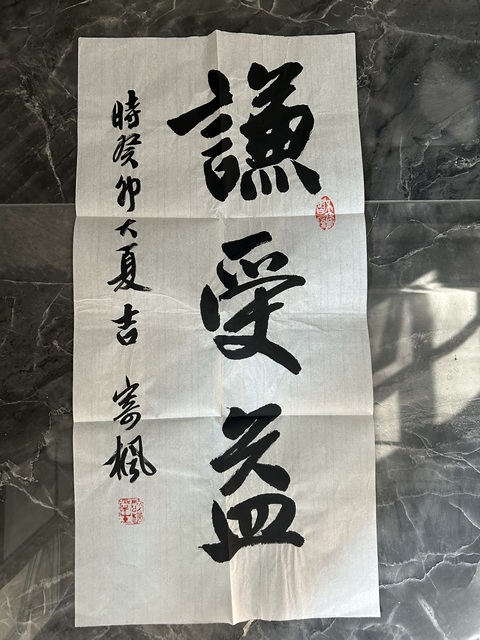 謙受益
時癸卯大夏吉 寄楓